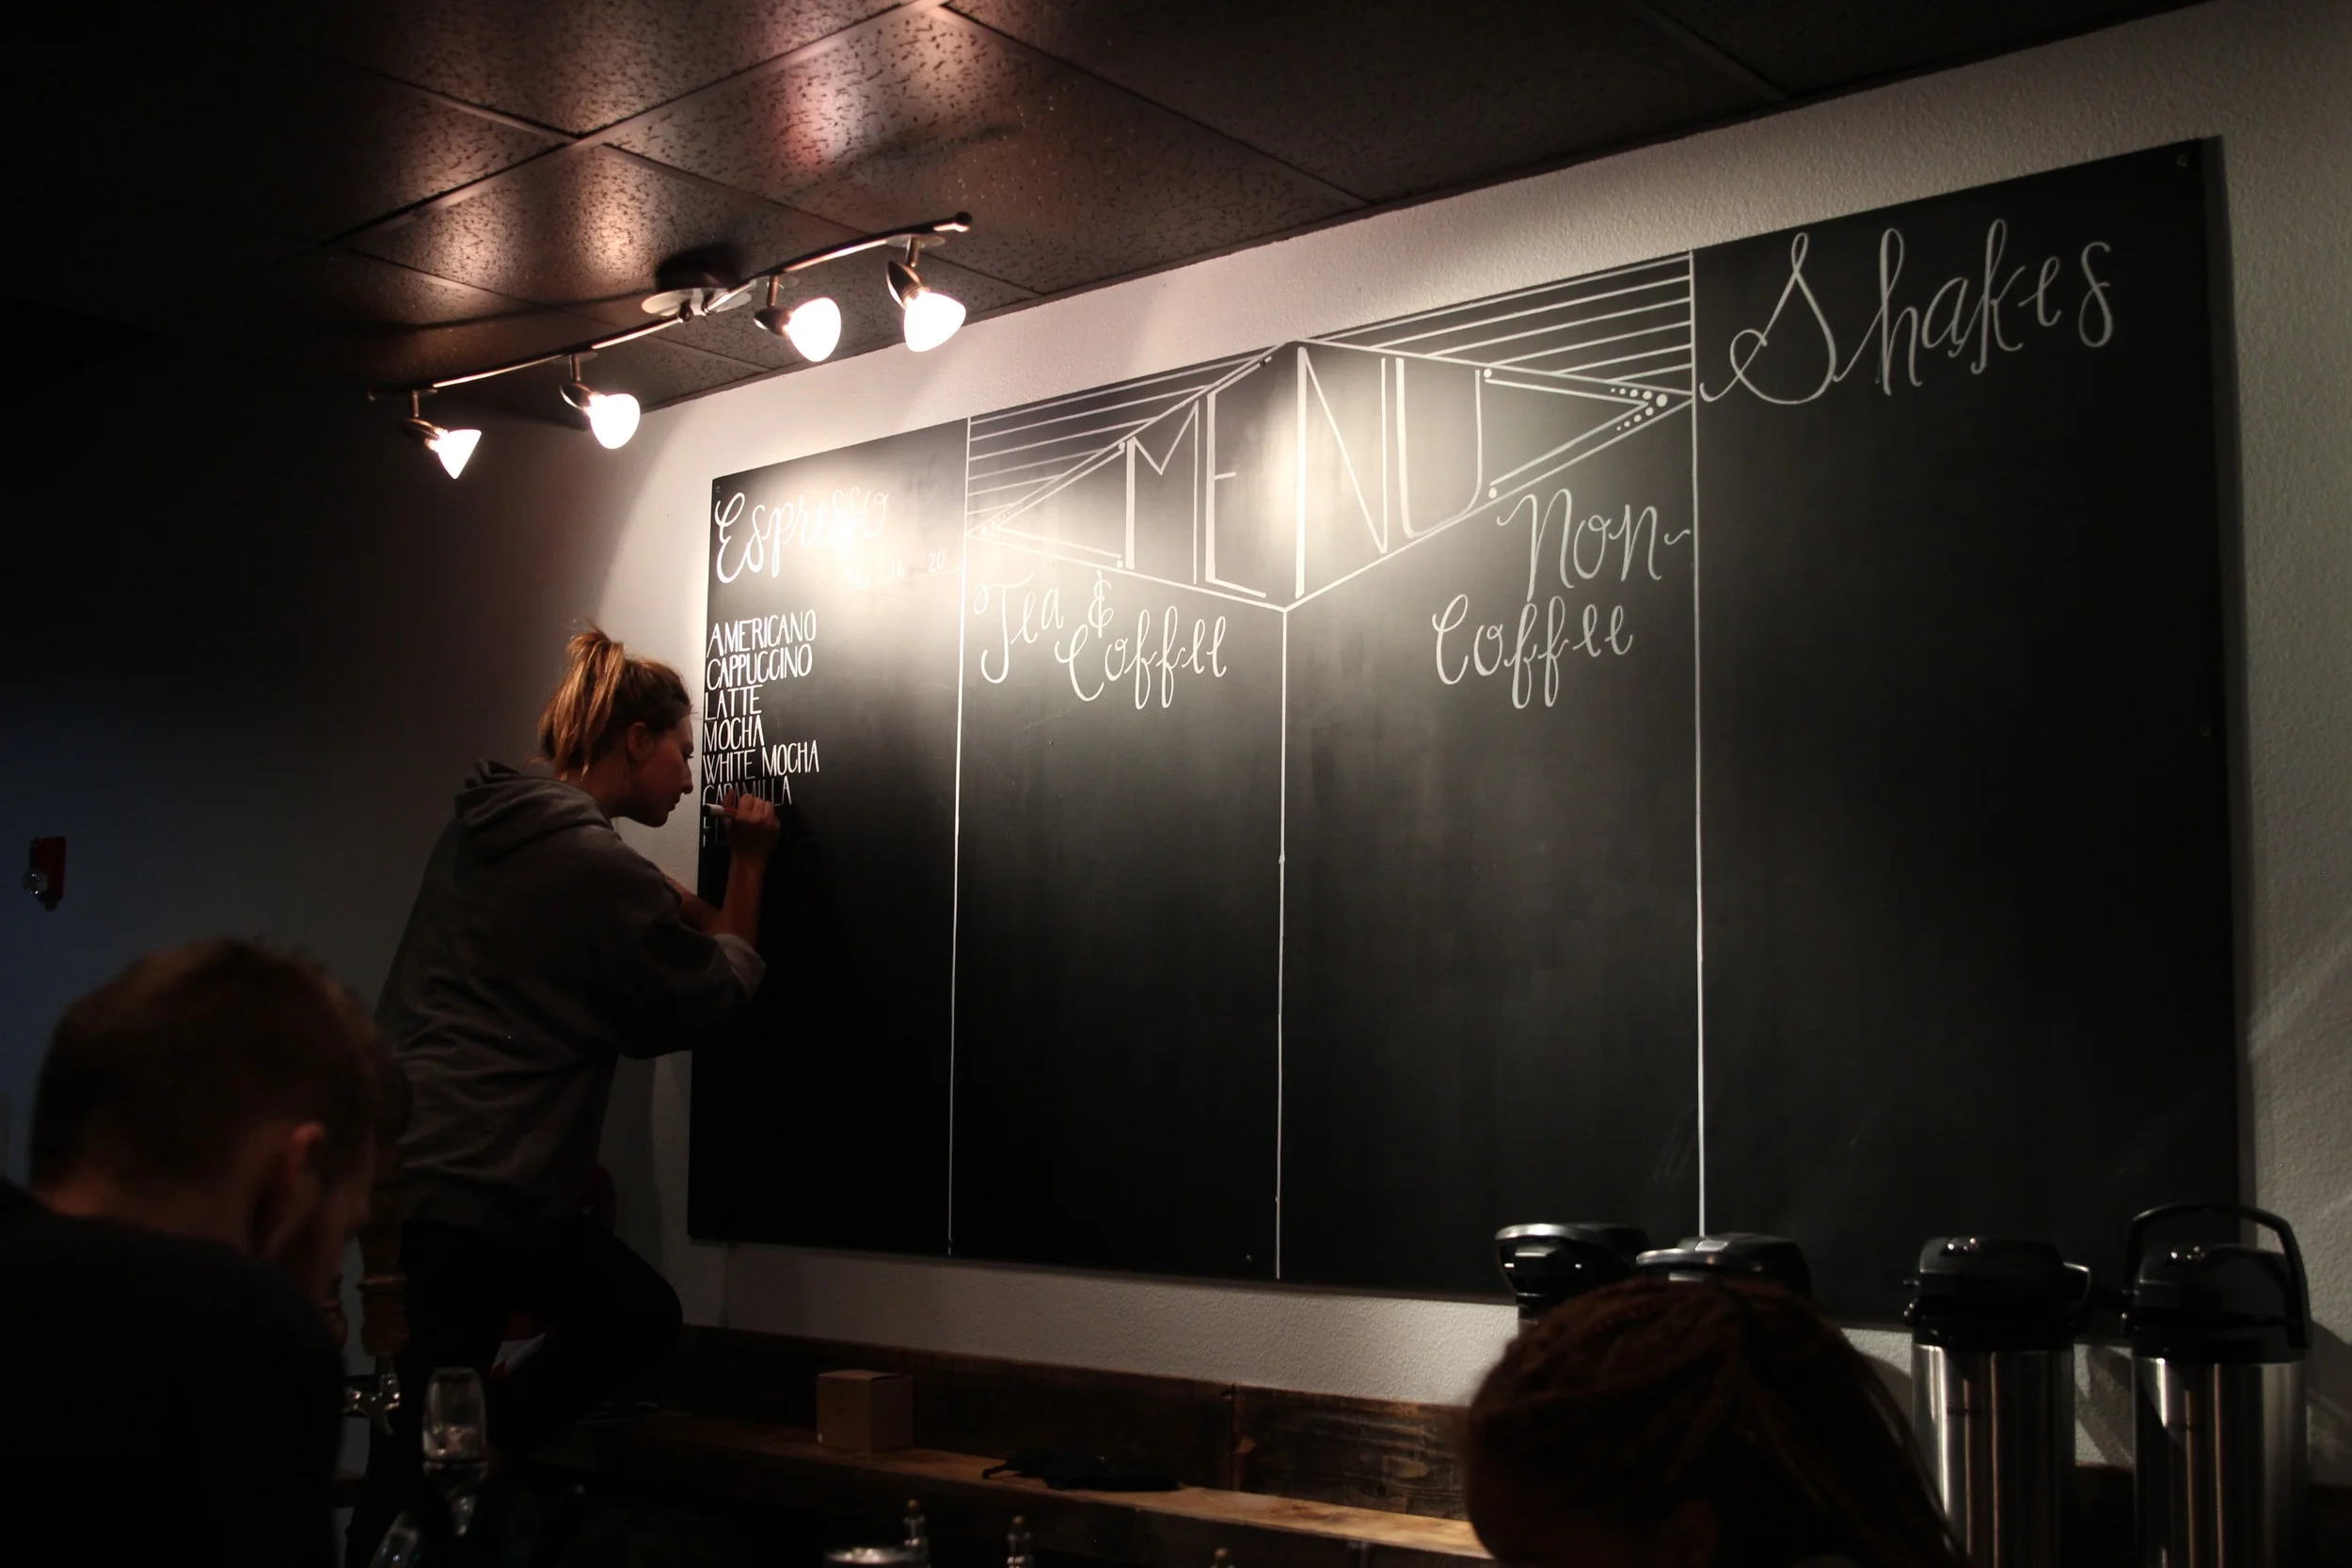 MENU
Espresso
16 20
AMERICANO
CAPPUCCINO
LATTE
MOCHA
WHITE MOCHA
CARAMILLA
Tea &
Coffee
Non-
Coffee
Shakes